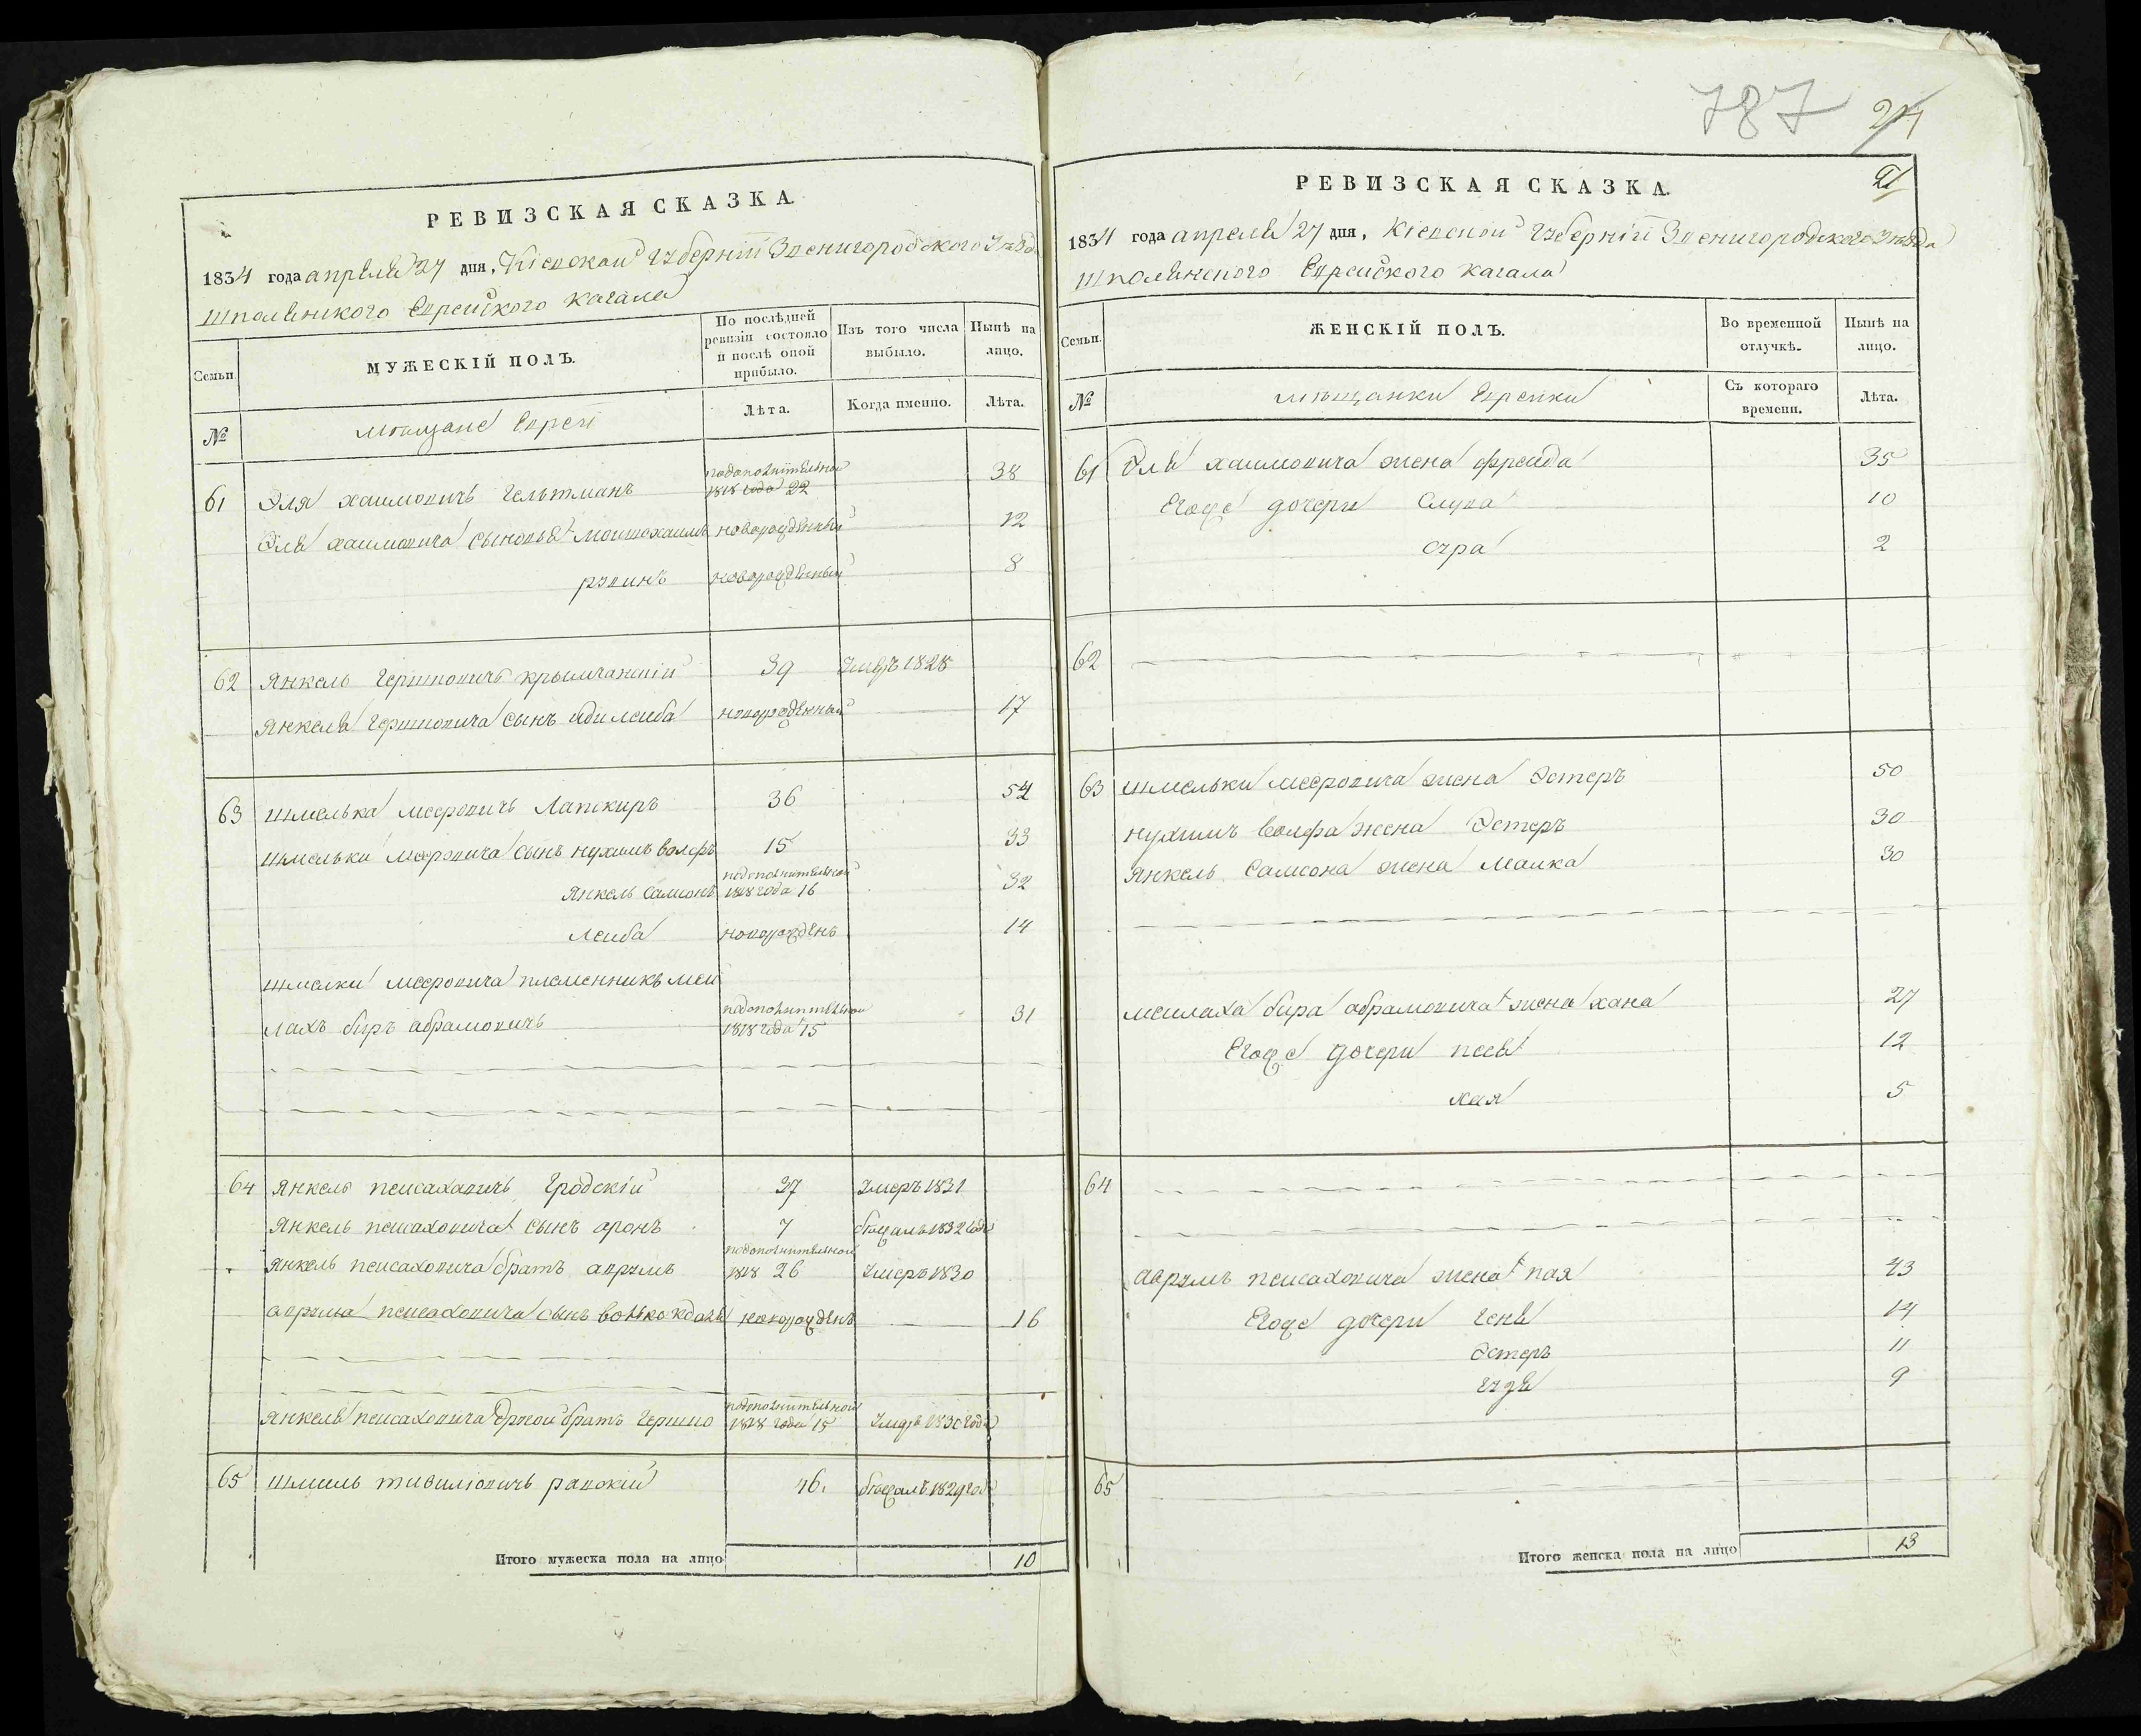 787 24
РЕВИЗСКАЯ СКАЗКА
1834 года апреля 27 дня, Кіевской Губерніи Звенигородского Уезда
Шполянского Еврейского Кагала
Семьи. МУЖЕСКІЙ ПОЛЪ. По послѣдней ревизіи состояло и послѣ оной прибыло. Изъ того числа выбыло. Нынѣ на лицо.
№ мѣщане Евреи Лѣта. Когда именно. Лѣта.
61 Эля хаимовичь Гельтманъ подополнительной 1818 года 22 38
Эля хаимовича сыновья мошохаимъ новорожденный 12
рувинъ новорожденный 8
62 Янкель Гершковичь крымчанскій 39 Умеръ 1828
Янкеля Гершковича сынъ идилейба новорожденный 17
63 Шмелька мееровичь Лапскиръ 36 54
Шмельки мееровича сынъ нухимъ волфъ 15 33
Янкель самсонъ подополнительной 1818 года 16 32
лейба новорожденъ 14
Шмелки мееровича племенникъ мей
лахъ биръ абрамовичъ подополнительной 1818 года 15 31
64 Янкель пейсаховичь Гродскій 27 Умеръ 1831
Янкель пейсаховича сынъ аронъ 7 бѣжалъ 1832 года
Янкель пейсаховича братъ аврумъ подополнительной 1818 26 Умеръ 1830
аврума пейсаховича сынъ волько новорожденъ 16
Янкеля пейсаховича другой братъ Гершко подополнительной 1818 года 15 Умеръ 1830 года
65 Шмиль равскій 46 бѣжалъ 1829 года
Итого мужеска пола на лицо 10
РЕВИЗСКАЯ СКАЗКА 21
1834 года апреля 27 дня, Кіевской Губерніи Звенигородского Уезда
Шполянского Еврейского Кагала
Семьи. ЖЕНСКІЙ ПОЛЪ. Во временной отлучкѣ. Нынѣ на лицо.
№ мѣщанки Еврейки Съ котораго времени. Лѣта.
61 Эля хаимовича жена фрейда 35
Егоже дочери слува 10
сура 2
62
63 Шмельки мееровича жена Эстеръ 50
нухимъ волфа жена Эстеръ 30
Янкель Самсона жена малка 30
мейлаха бира абрамовича жена хана 27
Егоже дочери песя 12
хая 5
64
аврумъ пейсаховича жена пая 43
Егоже дочери геня 14
Эстеръ 11
9
65
Итого женска пола на лицо 13